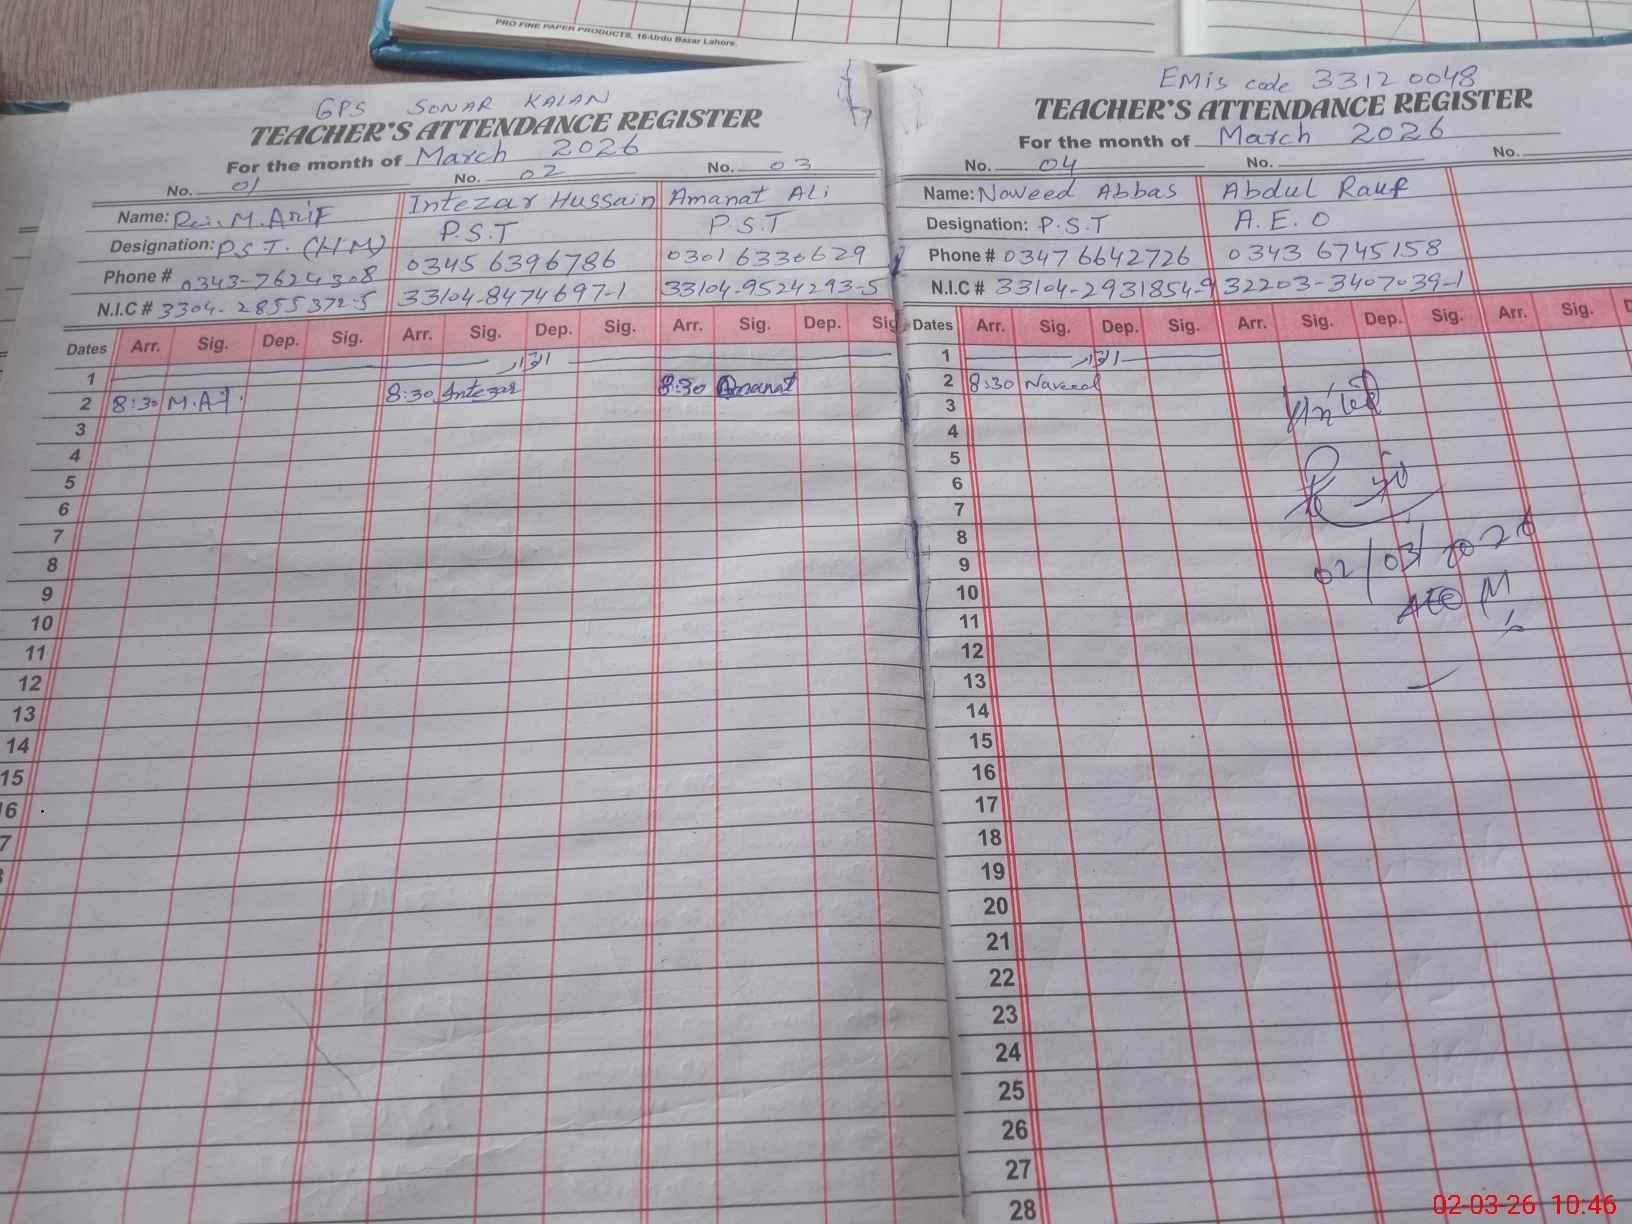 PRO FINE PAPER PRODUCTS, 16-Urdu Bazar Lahore.
GPS SONAR KALAN
TEACHER'S ATTENDANCE REGISTER
For the month of March 2026
No. 01 No. 02 No. 03
Name: M. Arif Intezar Hussain Amanat Ali
Designation: P.S.T. (H.M) P.S.T P.S.T
Phone # 0343-7624308 0345 6396786 0301 6330629
N.I.C # 3304-2855372-5 33104-8474697-1 33104-9524293-5
Dates Arr. Sig. Dep. Sig. Arr. Sig. Dep. Sig. Arr. Sig. Dep. Sig
1 اتوار
2 8:30 M.Arif 8:30 Intezar 8:30 Amanat
3
4
5
6
7
8
9
10
11
12
13
14
15
16
7
EMis code 33120048
TEACHER'S ATTENDANCE REGISTER
For the month of March 2026
No. 04 No. No.
Name: Naveed Abbas Abdul Rauf
Designation: P.S.T A.E.O
Phone # 0347 6642726 0343 6745158
N.I.C # 33104-2931854-9 32203-3407039-1
Dates Arr. Sig. Dep. Sig. Arr. Sig. Dep. Sig. Arr. Sig. D
1 اتوار
2 8:30 Naveed
3 Visited
4
5
6
7
8 02/03/2026
9
10 AEO M
11
12
13
14
15
16
17
18
19
20
21
22
23
24
25
26
27
28
02-03-26 10:46